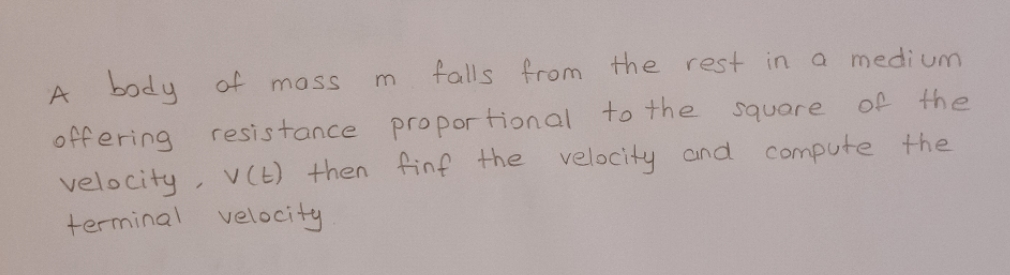 A body of mass m falls from the rest in a medium
offering resistance proportional to the square of the
velocity, v(t) then finf the velocity and compute the
terminal velocity